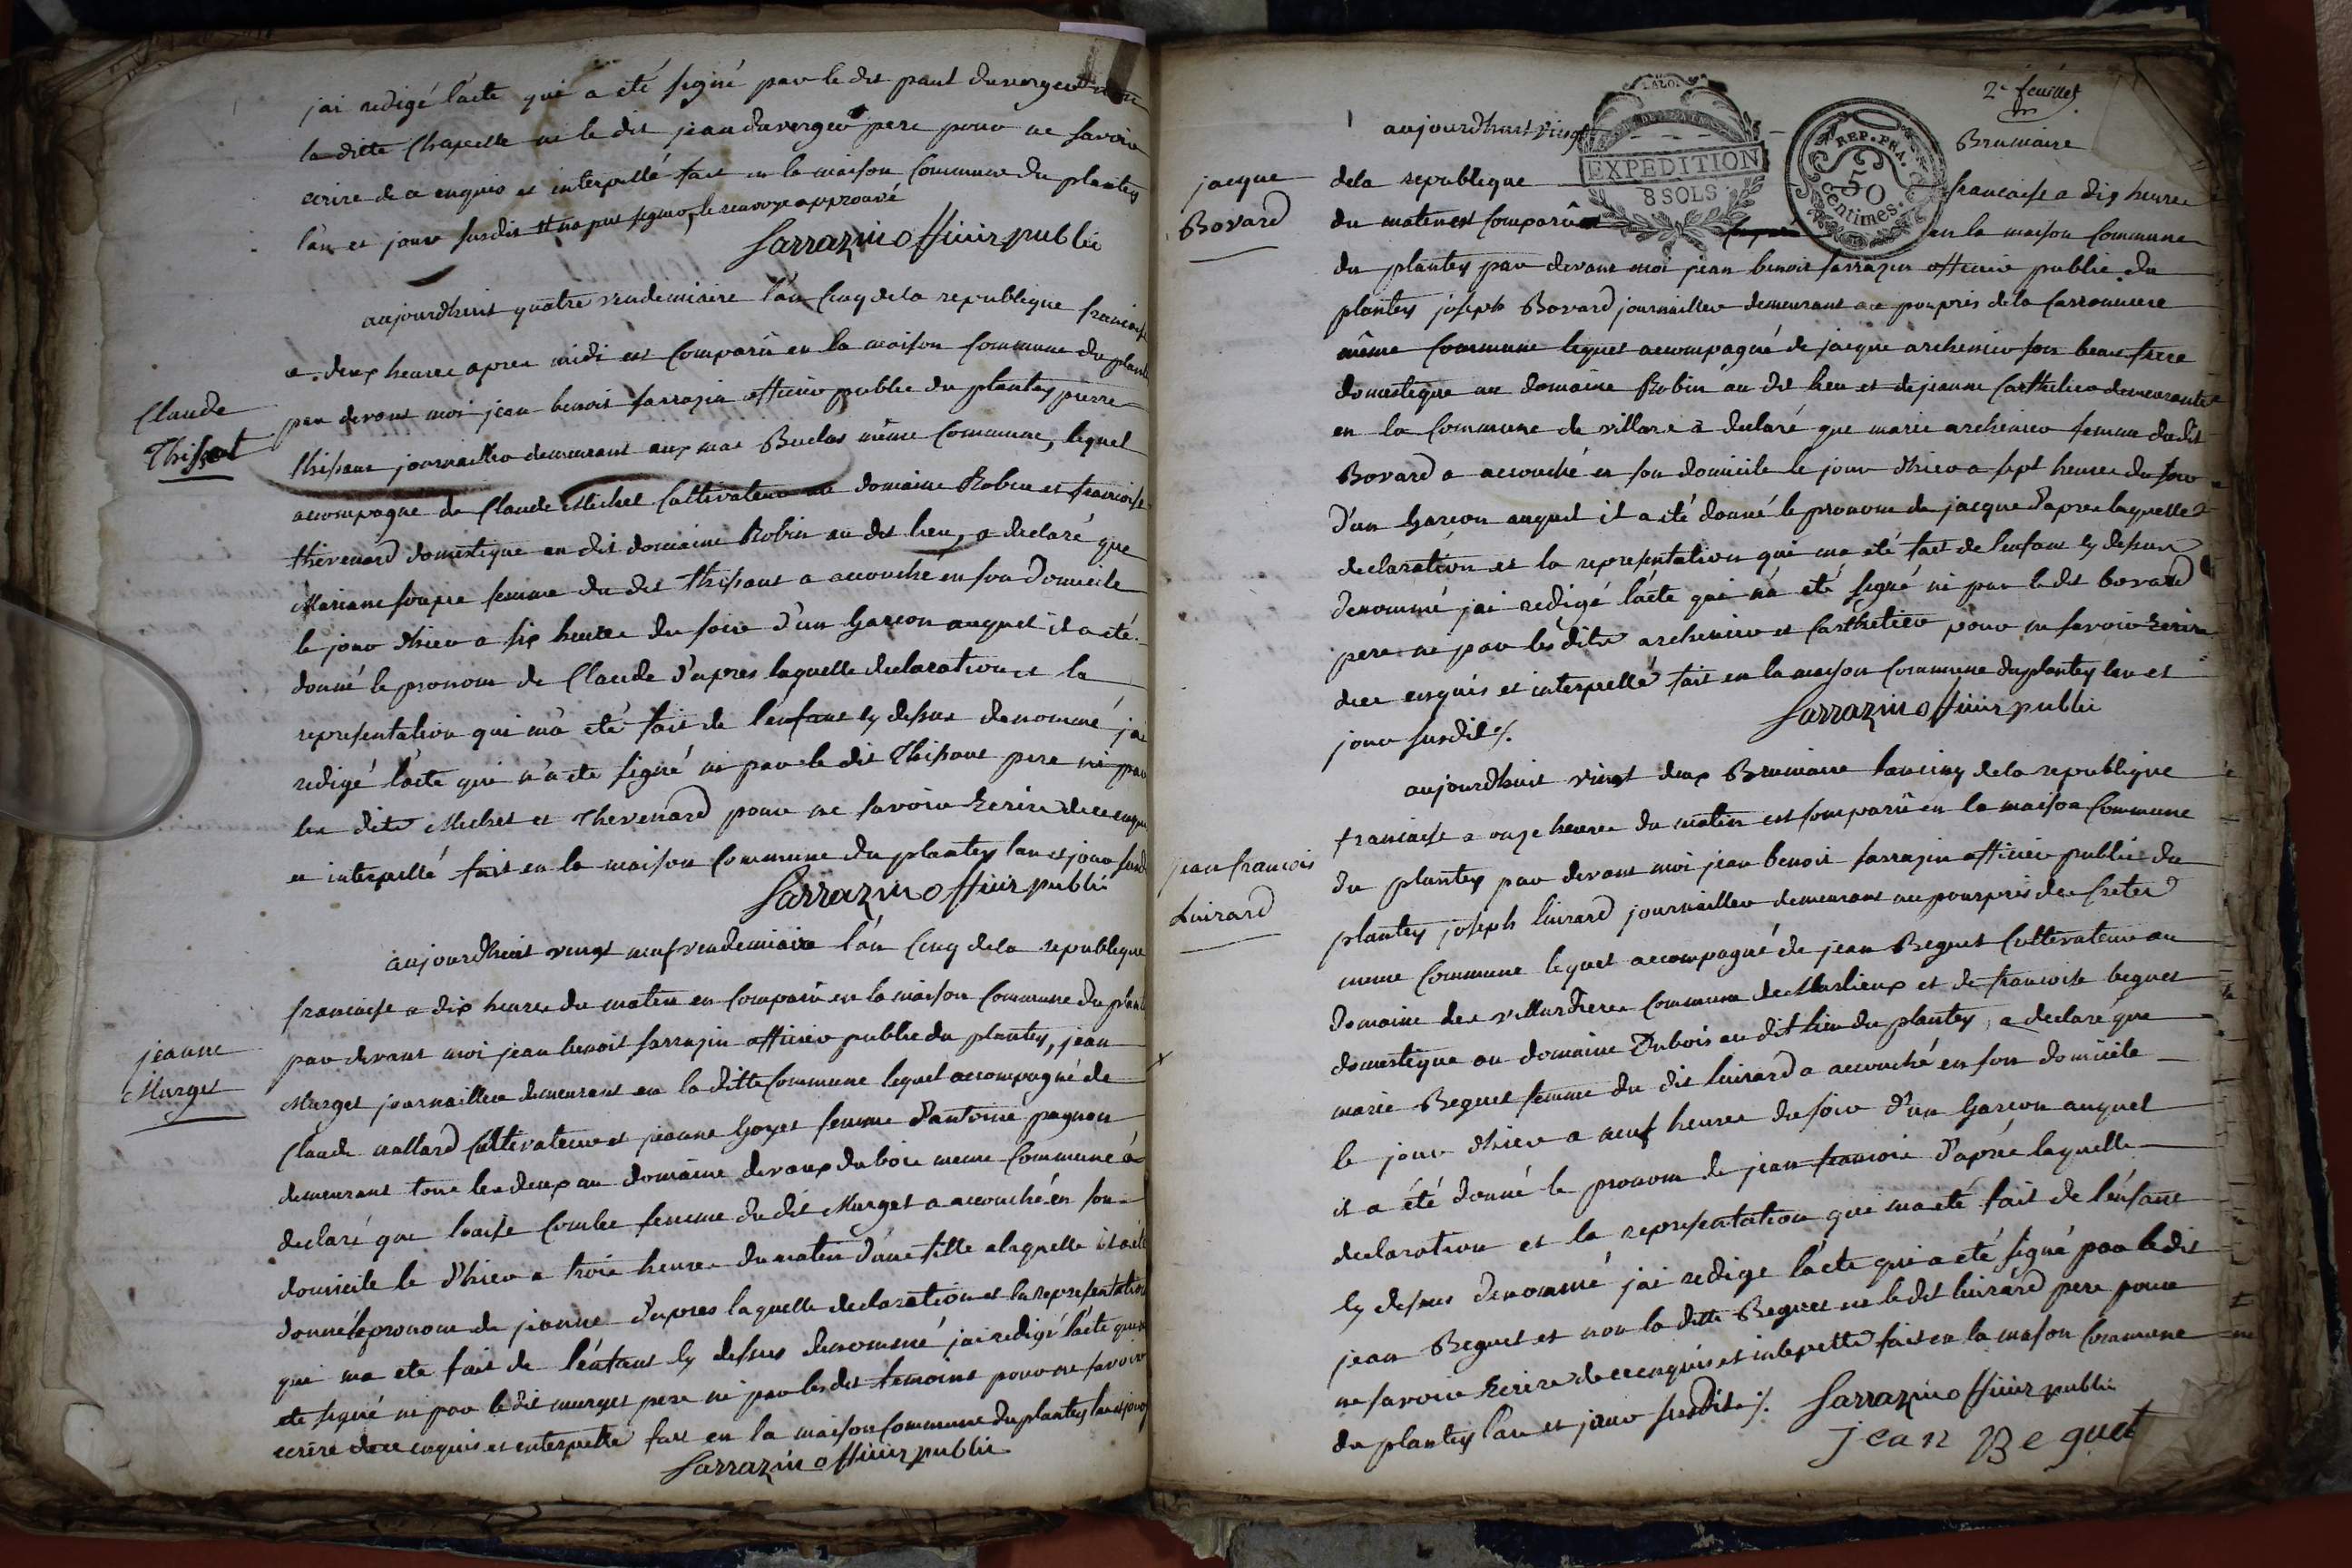 jai redigé lacte qui a eté signé par le dit paul duverger
la ditte Chapelle ni le dit jean duverger pere pour ne savoir
ecrire de ce enquis et interpellé fait en la maison Commune du plantey
l'an et jour susdit le renvoye approuvé
Sarrazin officier public
aujourdhuit quatre vendemiaire l'an Cinq dela republique francaise
a deux heures apres midi est Comparû en la maison Commune du plantey
Claude
Thissot
par devant moi jean benoit sarrazin officier public du plantey pierre
thissant journaillier demeurant aux mas Buclas même Commune, lequel
accompagné de Claude Michet Cultivateur au domaine Robin et francoise
thevenard domestique au dit domaine Robin au dit lieu, a declaré que
Mariane femme du dit thissant a accouché en son domicile
le jour dhier a six heures du soir d'un Garcon auquel il a eté
donné le pronom de Claude d'apres laquelle declaration et la
representation qui m'a eté fait de lenfant cy dessus denommé jai
redigé l'acte qui n'a eté signé ni par le dit Thissant pere ni par
les dits Michet et Thevenard pour ne savoir Ecrire de ce enquis
et interpellé fait en la maison Commune du plantey lan et jour susdit
Sarrazin officier public
aujourdhuit vingt neuf vendemiaire l'an Cinq dela republique
francaise a dix heures du matin est Comparû en la maison Commune du plantey
jeanne
Murget
par devant moi jean benoit sarrazin officier public du plantey, jean
Murget journaillier demeurant en la ditte Commune lequel accompagné de
Claude nallard Cultivateur et jeanne Goyet femme d'antoine pagnon
demeurant tous les deux au domaine devaux du bois meme Commune a
declaré que louise Combe femme du dit Murget a accouché en son
domicile le d'hier a trois heures du matin d'une fille a laquelle il a eté
donné le pronom de jeanne d'apres laquelle declaration et la representation
qui ma ete fait de l'enfant cy dessus denommé jai redigé l'acte qui na
ete signé ni par le dit murget pere ni par les dit temoins pour ne savoir
ecrire de ce enquis et interpellé fait en la maison Commune du plantey lan et jour
Sarrazin officier public
2e feuillet
aujourdhuit vingt Brumaire
EXPEDITION
8 SOLS
REP. FRA.
50
Centimes.
jacque
Bovard
dela republique francaise a dix heures
du matin est Comparû en la maison Commune
du plantey par devant moi jean benoit sarrazin officier public du
plantey joseph Bovard journaillier demeurant au pourpris de la
même Commune lequel accompagné de jacque archenier son beau frere
domestique au domaine Robin au dit lieu et de jeanne demeurante
en la Commune de villars a declaré que marie archenier femme du dit
Bovard a accouché en son domicile le jour dhier a sept heures du soir
d'un Garcon auquel il a eté donné le pronom de jacque d'apres laquelle
declaration et la representation qui ma eté fait de lenfant cy dessus
denommé jai redigé l'acte qui n'a eté signé ni par le dit bovard
pere ni par les dits archenier et pour ne savoir Ecrire
de ce enquis et interpellé fait en la maison Commune du plantey lan et
jour susdit ./.
Sarrazin officier public
aujourdhuit vingt deux Brumaire lan cinq de la republique
francaise a onze heures du matin est Comparû en la maison Commune
jean francois
Luirard
du plantey par devant moi jean benoit sarrazin officier public du
plantey joseph luirard journaillier demeurant au pourpris des
meme Commune lequel accompagné de jean Beguet Cultivateur au
domaine des villardieres Commune de Marlieux et de francoise beguet
domestique au domaine Dubois au dit lieu du plantey, a declaré que
marie Beguet femme du dit luirard a accouché en son domicile
le jour dhier a neuf heures du soir d'un Garcon auquel
il a été donné le pronom de jean francois d'après laquelle
declaration et la representation qui ma eté fait de l'enfant
cy dessus denommé jai redigé l'acte qui a eté signé par le dit
jean Beguet et non la ditte Beguet ni le dit luirard pere pour
ne savoir Ecrire de ce enquis et interpellé fait en la maison Commune
du plantey l'an et jour susdit ./. Sarrazin officier public
jean Beguet